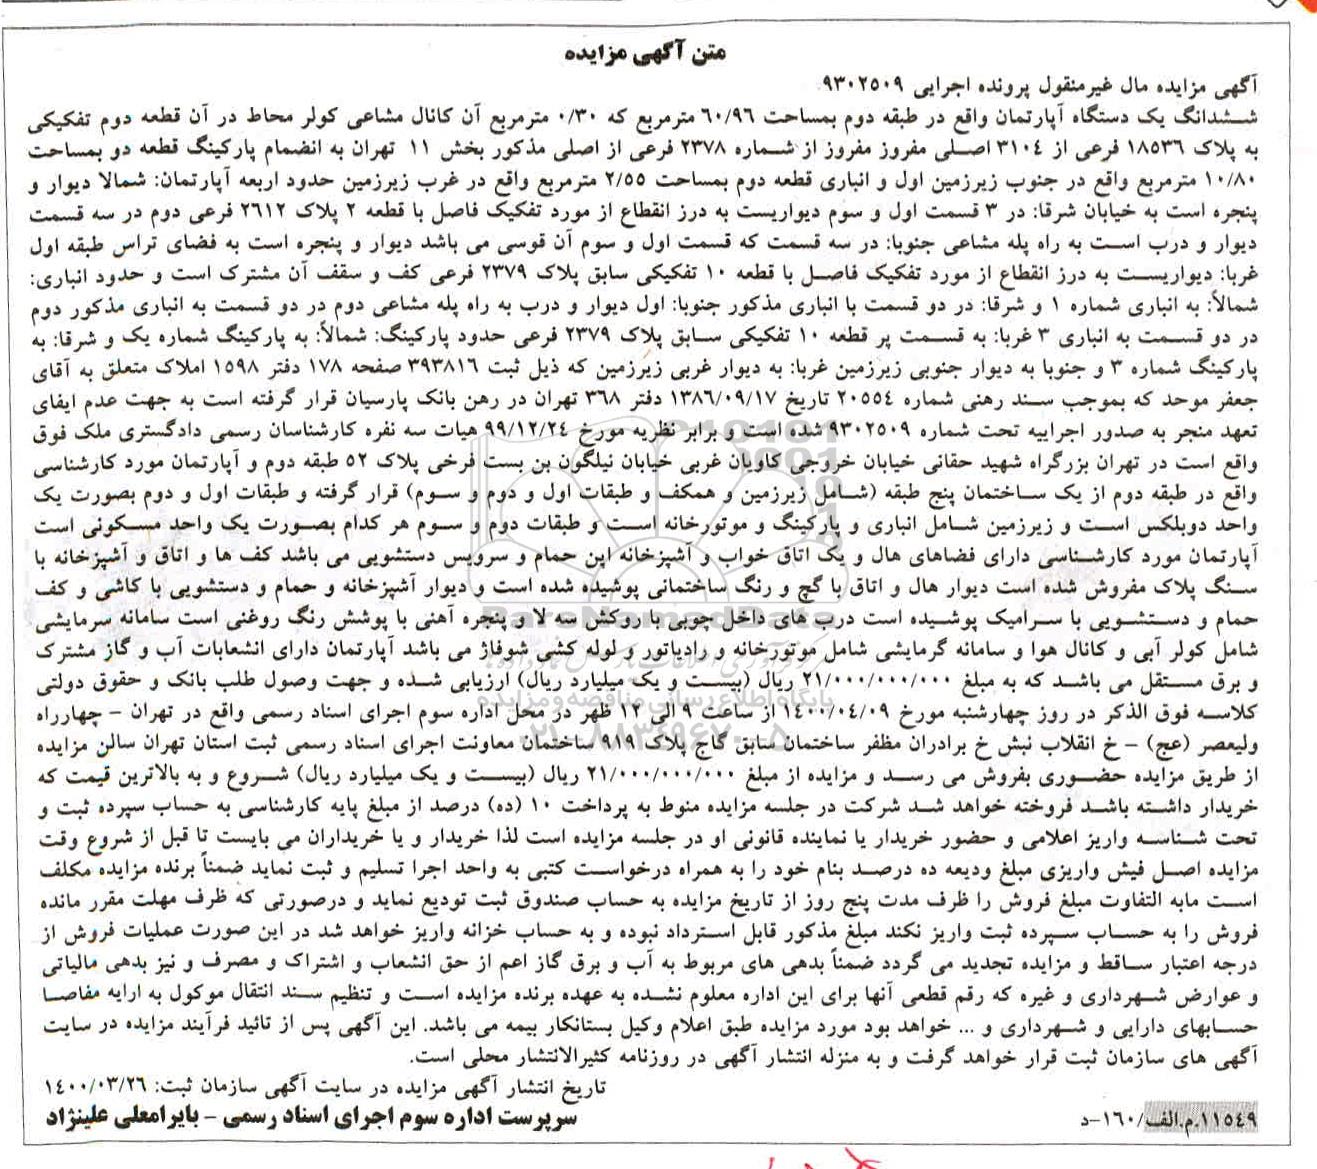 متن آگهی مزایده
آگهی مزایده مال غیرمنقول پرونده اجرایی ۹۳۰۲۵۰۹
ششدانگ یک دستگاه آپارتمان واقع در طبقه دوم بمساحت ۶۰/۹۶ مترمربع که ۰/۳۰ مترمربع آن کانال مشاعی کولر محاط در آن قطعه دوم تفکیکی
به پلاک ۱۸۵۳۶ فرعی از ۳۱۰٤ اصلی مفروز مفروز از شماره ۲۳۷۸ فرعی از اصلی مذکور بخش ۱۱ تهران به انضمام پارکینگ قطعه دو بمساحت
۱۰/۸۰ مترمربع واقع در جنوب زیرزمین اول و انباری قطعه دوم بمساحت ۲/۵۵ مترمربع واقع در غرب زیرزمین حدود اربعه آپارتمان: شمالا دیوار و
پنجره است به خیابان شرقا: در ۳ قسمت اول و سوم دیواریست به درز انقطاع از مورد تفکیک فاصل با قطعه ۲ پلاک ۲٦۱۲ فرعی دوم در سه قسمت
دیوار و درب است به راه پله مشاعی جنوبا: در سه قسمت که قسمت اول و سوم آن قوسی می باشد دیوار و پنجره است به فضای تراس طبقه اول
غربا: دیواریست به درز انقطاع از مورد تفکیک فاصل با قطعه ۱۰ تفکیکی سابق پلاک ۲۳۷۹ فرعی کف و سقف آن مشترک است و حدود انباری:
شمالاً: به انباری شماره ۱ و شرقا: در دو قسمت با انباری مذکور جنوبا: اول دیوار و درب به راه پله مشاعی دوم در دو قسمت به انباری مذکور دوم
در دو قسمت به انباری ۳ غربا: به قسمت پر قطعه ۱۰ تفکیکی سابق پلاک ۲۳۷۹ فرعی حدود پارکینگ: شمالاً: به پارکینگ شماره یک و شرقا: به
پارکینگ شماره ۳ و جنوبا به دیوار جنوبی زیرزمین غربا: به دیوار غربی زیرزمین که ذیل ثبت ۳۹۳۸۱٦ صفحه ۱۷۸ دفتر ۱۵۹۸ املاک متعلق به آقای
جعفر موحد که بموجب سند رهنی شماره ۲۰۵۵٤ تاریخ ۱۳۸٦/۰۹/۱۷ دفتر ۳٦۸ تهران در رهن بانک پارسیان قرار گرفته است به جهت عدم ایفای
تعهد منجر به صدور اجراییه تحت شماره ۹۳۰۲۵۰۹ شده است و برابر نظریه مورخ ۹۹/۱۲/۲٤ هیات سه نفره کارشناسان رسمی دادگستری ملک فوق
واقع است در تهران بزرگراه شهید حقانی خیابان خروجی کاویان غربی خیابان نیلگون بن بست فرخی پلاک ۵۲ طبقه دوم و آپارتمان مورد کارشناسی
واقع در طبقه دوم از یک ساختمان پنج طبقه (شامل زیرزمین و همکف و طبقات اول و دوم و سوم) قرار گرفته و طبقات اول و دوم بصورت یک
واحد دوبلکس است و زیرزمین شامل انباری و پارکینگ و موتورخانه است و طبقات دوم و سوم هر کدام بصورت یک واحد مسکونی است
آپارتمان مورد کارشناسی دارای فضاهای هال و یک اتاق خواب و آشپزخانه اپن حمام و سرویس دستشویی می باشد کف ها و اتاق و آشپزخانه با
سنگ پلاک مفروش شده است دیوار هال و اتاق با گچ و رنگ ساختمانی پوشیده شده است و دیوار آشپزخانه و حمام و دستشویی با کاشی و کف
حمام و دستشویی با سرامیک پوشیده است درب های داخل چوبی با روکش سه لا و پنجره آهنی با پوشش رنگ روغنی است سامانه سرمایشی
شامل کولر آبی و کانال هوا و سامانه گرمایشی شامل موتورخانه و رادیاتور و لوله کشی شوفاژ می باشد آپارتمان دارای انشعابات آب و گاز مشترک
و برق مستقل می باشد که به مبلغ ۲۱/۰۰۰/۰۰۰/۰۰۰ ریال (بیست و یک میلیارد ریال) ارزیابی شده و جهت وصول طلب بانک و حقوق دولتی
کلاسه فوق الذکر در روز چهارشنبه مورخ ۱٤۰۰/۰٤/۰۹ از ساعت ۹ الی ۱۲ ظهر در محل اداره سوم اجرای اسناد رسمی واقع در تهران – چهارراه
ولیعصر (عج) – خ انقلاب نبش خ برادران مظفر ساختمان سابق گاج پلاک ۹۱۹ ساختمان معاونت اجرای اسناد رسمی ثبت استان تهران سالن مزایده
از طریق مزایده حضوری بفروش می رسد و مزایده از مبلغ ۲۱/۰۰۰/۰۰۰/۰۰۰ ریال (بیست و یک میلیارد ریال) شروع و به بالاترین قیمت که
خریدار داشته باشد فروخته خواهد شد شرکت در جلسه مزایده منوط به پرداخت ۱۰ (ده) درصد از مبلغ پایه کارشناسی به حساب سپرده ثبت و
تحت شناسه واریز اعلامی و حضور خریدار یا نماینده قانونی او در جلسه مزایده است لذا خریدار و یا خریداران می بایست تا قبل از شروع وقت
مزایده اصل فیش واریزی مبلغ ودیعه ده درصد بنام خود را به همراه درخواست کتبی به واحد اجرا تسلیم و ثبت نماید ضمناً برنده مزایده مکلف
است مابه التفاوت مبلغ فروش را ظرف مدت پنج روز از تاریخ مزایده به حساب صندوق ثبت تودیع نماید و درصورتی که ظرف مهلت مقرر مانده
فروش را به حساب سپرده ثبت واریز نکند مبلغ مذکور قابل استرداد نبوده و به حساب خزانه واریز خواهد شد در این صورت عملیات فروش از
درجه اعتبار ساقط و مزایده تجدید می گردد ضمناً بدهی های مربوط به آب و برق گاز اعم از حق انشعاب و اشتراک و مصرف و نیز بدهی مالیاتی
و عوارض شهرداری و غیره که رقم قطعی آنها برای این اداره معلوم نشده به عهده برنده مزایده است و تنظیم سند انتقال موکول به ارایه مفاصا
حسابهای دارایی و شهرداری و ... خواهد بود مورد مزایده طبق اعلام وکیل بستانکار بیمه می باشد. این آگهی پس از تائید فرآیند مزایده در سایت
آگهی های سازمان ثبت قرار خواهد گرفت و به منزله انتشار آگهی در روزنامه کثیرالانتشار محلی است.
تاریخ انتشار آگهی مزایده در سایت آگهی سازمان ثبت: ۱٤۰۰/۰۳/۲٦
سرپرست اداره سوم اجرای اسناد رسمی – بایرامعلی علینژاد
۱۱۵٤۹.م.الف/۱٦۰-د
ParsNamadData
پایگاه اطلاع رسانی مناقصه و مزایده
۰۲۱-۸۸۳٤۹٦۷۰-۵